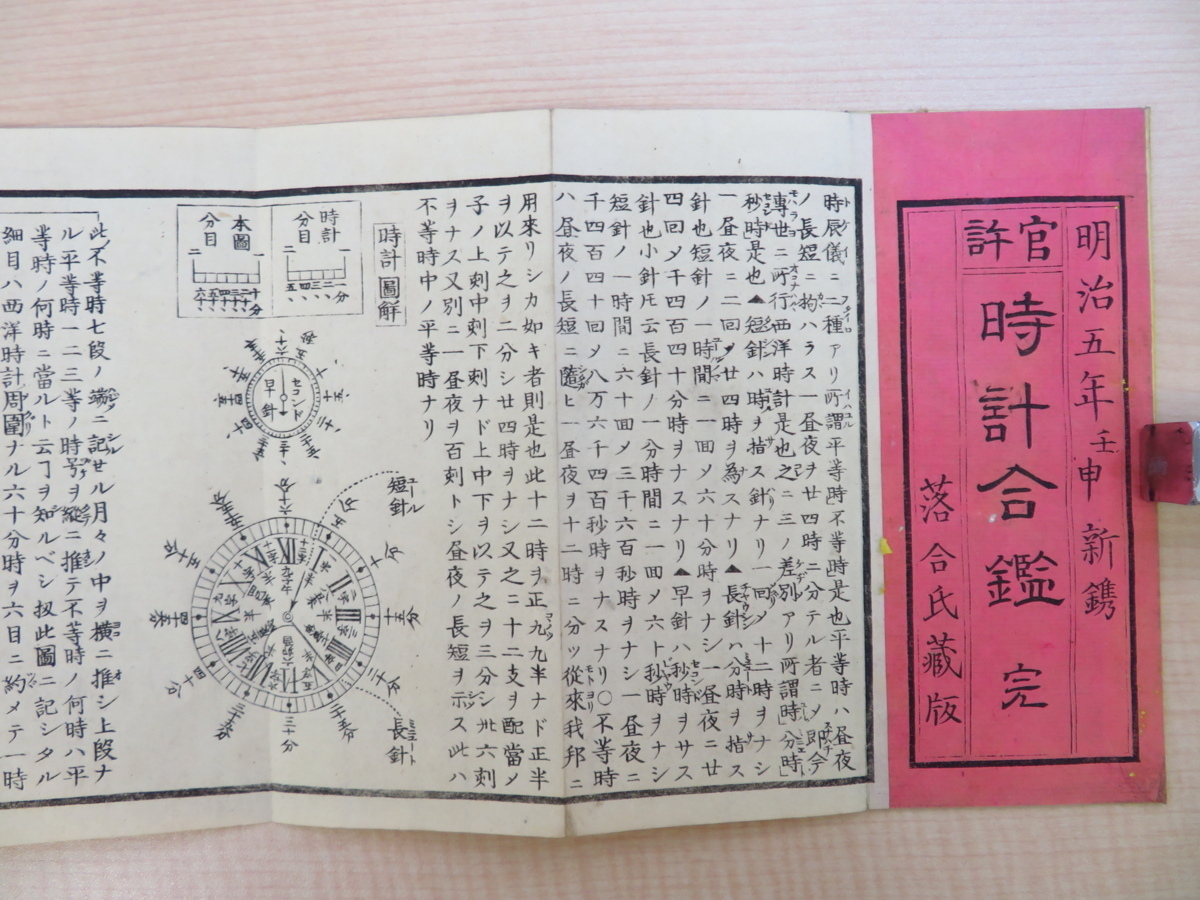 明治五年壬申新鐫
官許
時計合鑑 完
落合氏藏版
時辰儀ニ二種アリ所謂平等時不等時是也平等時ハ晝夜
ノ長短ニ拘ハラス一昼夜ヲ廿四時ニ分テル者ニメ即今
專世ニ所行西洋時計是也之ニ三ノ差別アリ所謂時分時
秒時是也▲短針ハ時ヲ指ス針ナリ一回メ十二時ヲナシ
一昼夜ニ二回メ廿四時ヲ為スナリ▲長針ハ分時ヲ指ス
針也短針ノ一時間ニ一回メ六十分時ヲナシ一昼夜ニ廿
四回メ千四百四十分時ヲナスナリ▲早針ハ秒時ヲサス
針也小針圧云長針ノ一分時間ニ一回メ六十秒時ヲナシ
短針ノ一時間ニ六十回メ三千六百秒時ヲナシ一昼夜ニ
千四百四十回メ八万六千四百秒時ヲナスナリ〇不等時
ハ昼夜ノ長短ニ隨ヒ一昼夜ヲ十二時ニ分ツ從來我邦ニ
用來リシカ如キ者則是也此十二時ヲ正九九半ナド正半
ヲ以テ之ヲ二分シ廿四時ヲナシ又之ニ十二支ヲ配當メ
子ノ上刻中刻下刻ナド上中下ヲ以テ之ヲ三分シ卅六刻
ヲナス又別ニ一昼夜ヲ百刻トシ昼夜ノ長短ヲ示ス此ハ
不等時中ノ平等時ナリ
時計圖解
時計分目
一 二
一二三四五分
本圖分目
一 二
十二十三十四十五十六十分
早針
セコンド
短針
長針
五分
十分
十五分
三十分
四十分
此不等時七段ノ端ニ記セル月々ノ中ヲ横ニ推シ上段ナ
ル平等時一二三等ノ時号ヲ縱ニ推テ不等時ノ何時ハ平
等時ノ何時ニ當ルト云丁ヲ知ルベシ扨此圖ニ記シタル
細目ハ西洋時計周圍ナル六十分時ヲ六目ニ約メテ一時